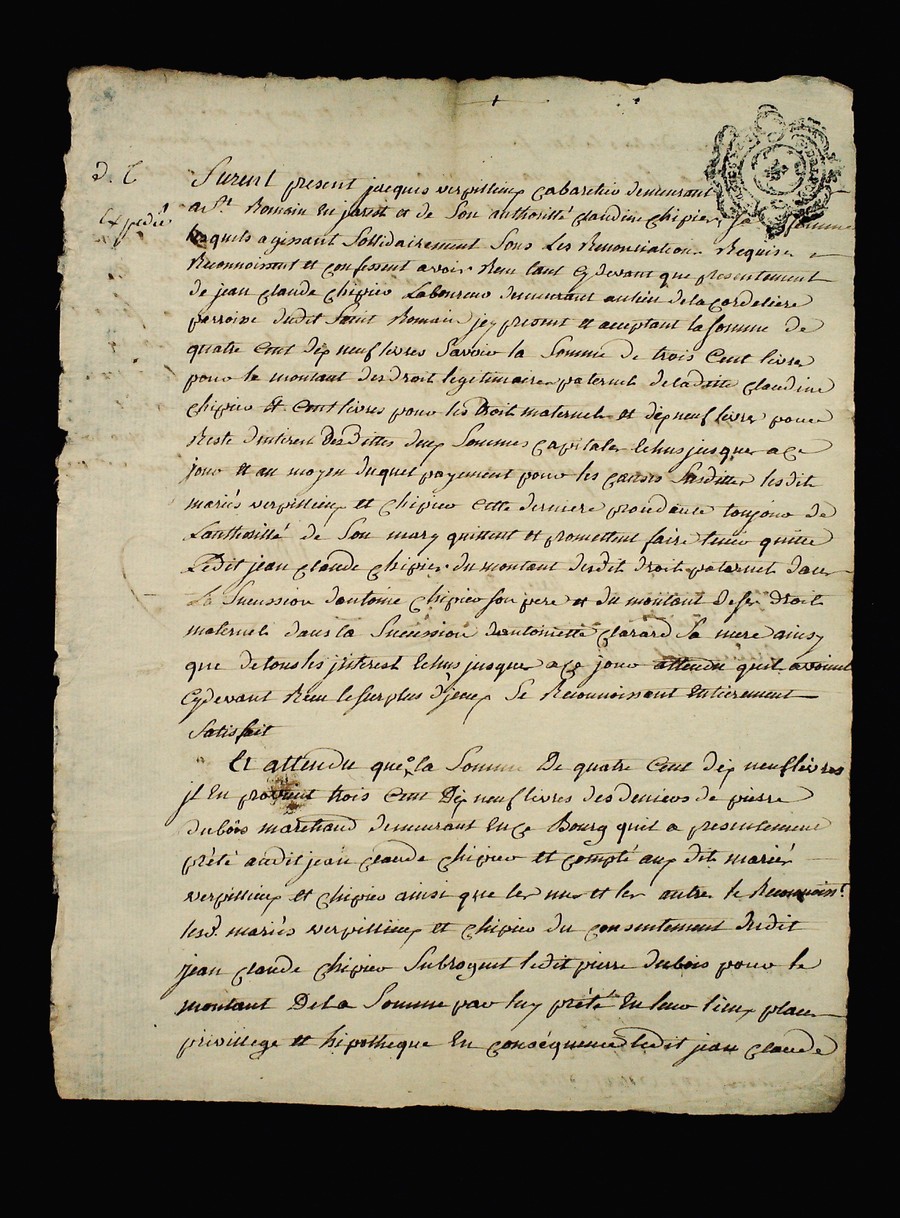 d. C
Expedié
Furent present jacques verpillieux cabaretier demeurant
a St. Romain En jarest et de Son authorité claudine chipier Sa femme
lesquels agissant Sollidairement Sous Les Renonsiations Requises
Reconnoissent et confessent avoir Reçu tant cy devant que presentement
de jean claude chipier Laboureur demeurant au lieu de la cordeliere
parroisse dudit Saint Romain jcy present et aceptant la Somme de
quatre Cent dix neuf livres Savoir la Somme de trois Cent livres
pour le montant des droit legitimaires paternels de la ditte claudine
chipier et Cent livres pour les droit maternels et dix neuf livres pour
Reste d'interest desdittes deux Sommes capitales Echus jusques a ce
jour et au moyen duquel payement pour les causes Susdittes lesdit
mariés verpillieux et chipier cette derniere procedante toujour de
L'authorité de Son mary quittent et promettent faire tenir quitte
Ledit jean claude chipier du montant desdit droit paternels dans
La Sucession d'antoine chipier son pere et du montant de ses droit
maternels dans la Sucession d'antoinette clarard Sa mere ainsy
que de tous les jnterest Echus jusques a ce jour attendu quil avoient
Cy devant Reçu le Surplus d'jceux Se Reconnoissant Entierement
Satisfait
Et attendu que de la Somme De quatre Cent dix neuf livres
jl En provient trois Cent Dix neuf livres des deniers de pierre
dubois marchand demeurant En ce Bourg quil a presentement
prété audit jean claude chipier et compté aux dit mariés
verpillieux et chipier ainsi que les uns et les autres le Reconnoiss.t
lesd. mariés verpillieux et chipier du consentement dudit
jean claude chipier Subrogent ledit pierre dubois pour le
montant De la Somme par luy prétée En leur lieux place
privillege et hipotheque En conséquence ledit jean claude